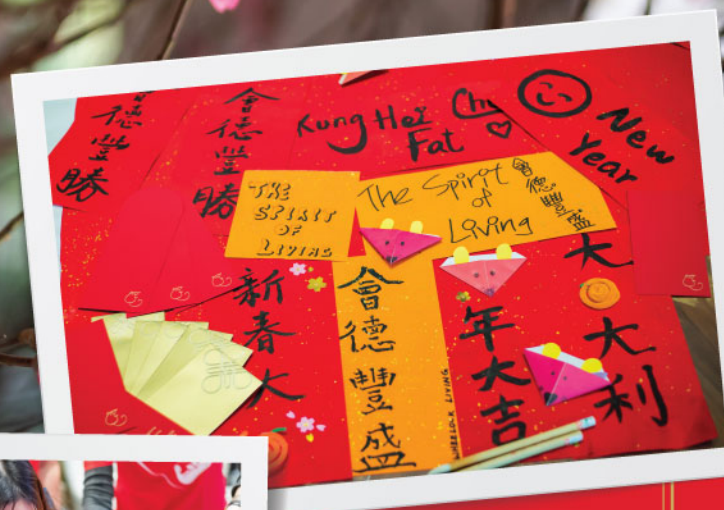 德豐勝
會德豐勝
Kung Hei
Fat
New
Year
THE
SPIRIT
OF
LIVING
The Spirit
of
Living
會德豐盛
新春大
會德豐盛
WHEELOCK LIVING
年大吉
大大利